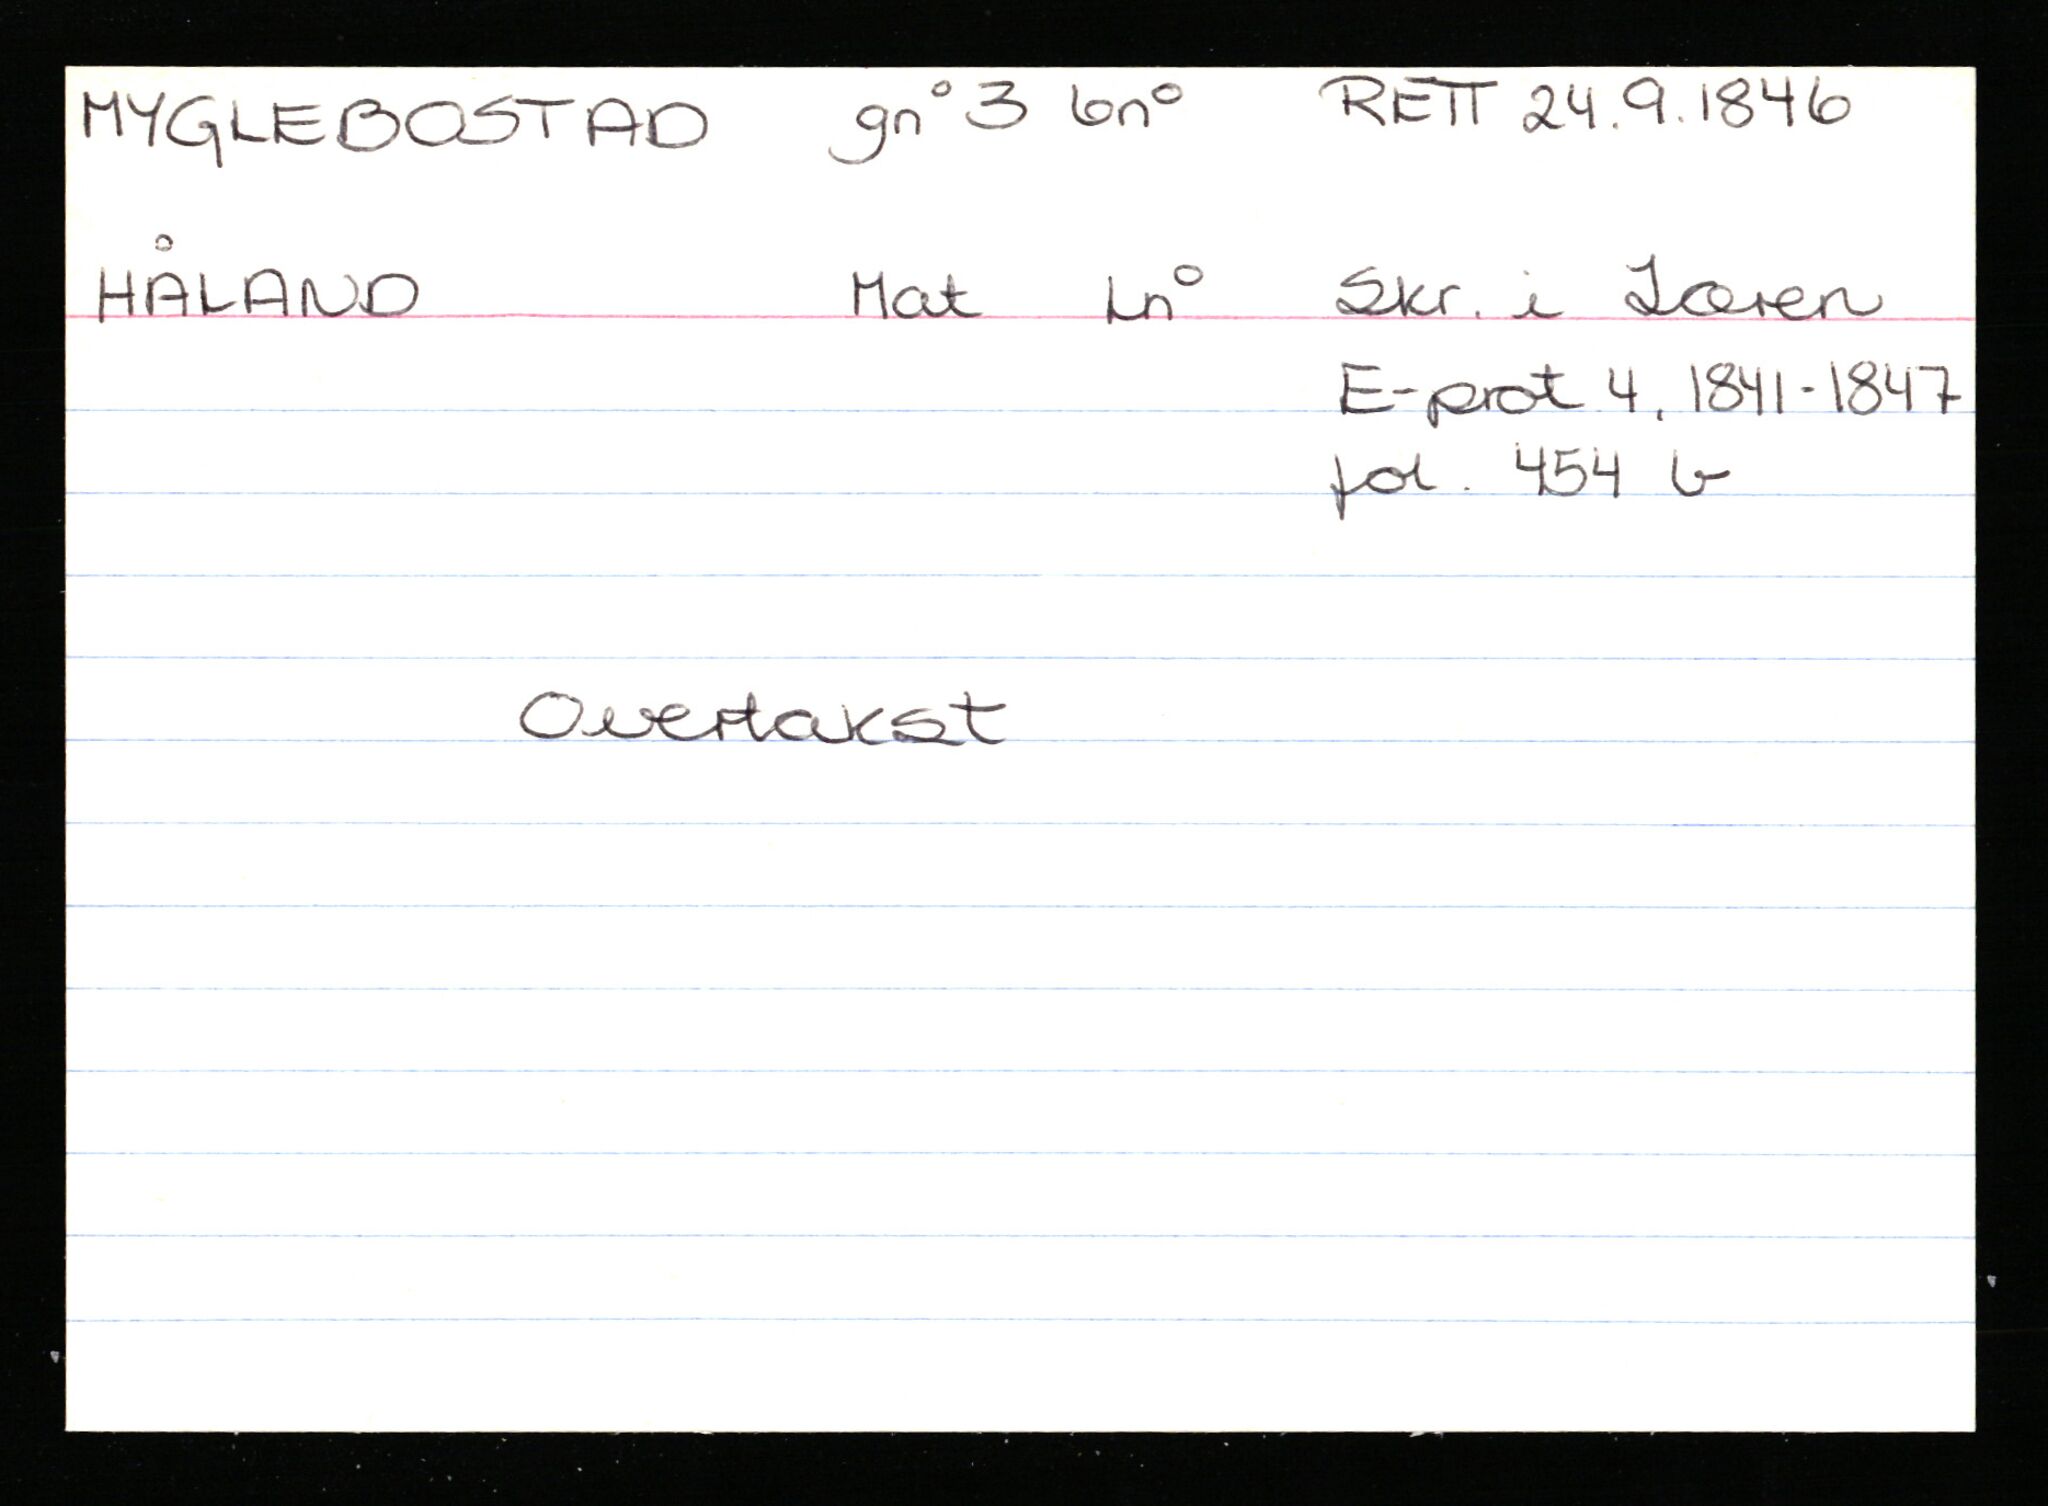 MYGLEBOSTAD gn° 3 bn° RETT 24.9.1846
HÅLAND Mat Ln° Skr. i Jæren
E-prot 4, 1841-1847
fol. 454 b
Overtakst